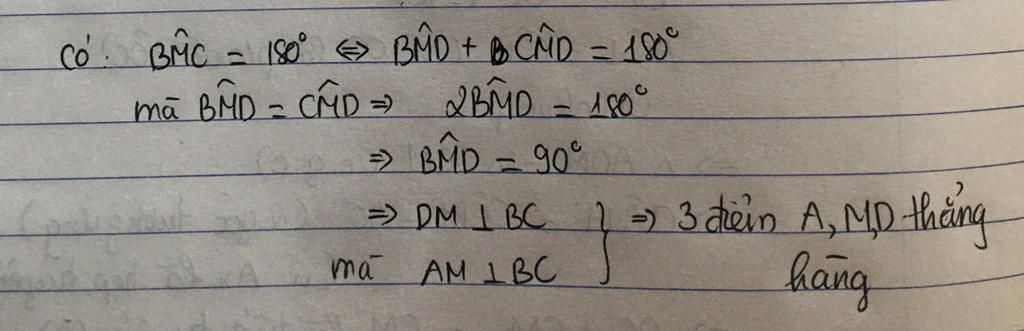 Có: BM̂C = 180° ⇔ BM̂D + CM̂D = 180°
mà BM̂D = CM̂D ⇒ 2BM̂D = 180°
⇒ BM̂D = 90°
⇒ DM ⊥ BC } ⇒ 3 điểm A, M, D thẳng
mà AM ⊥ BC hàng